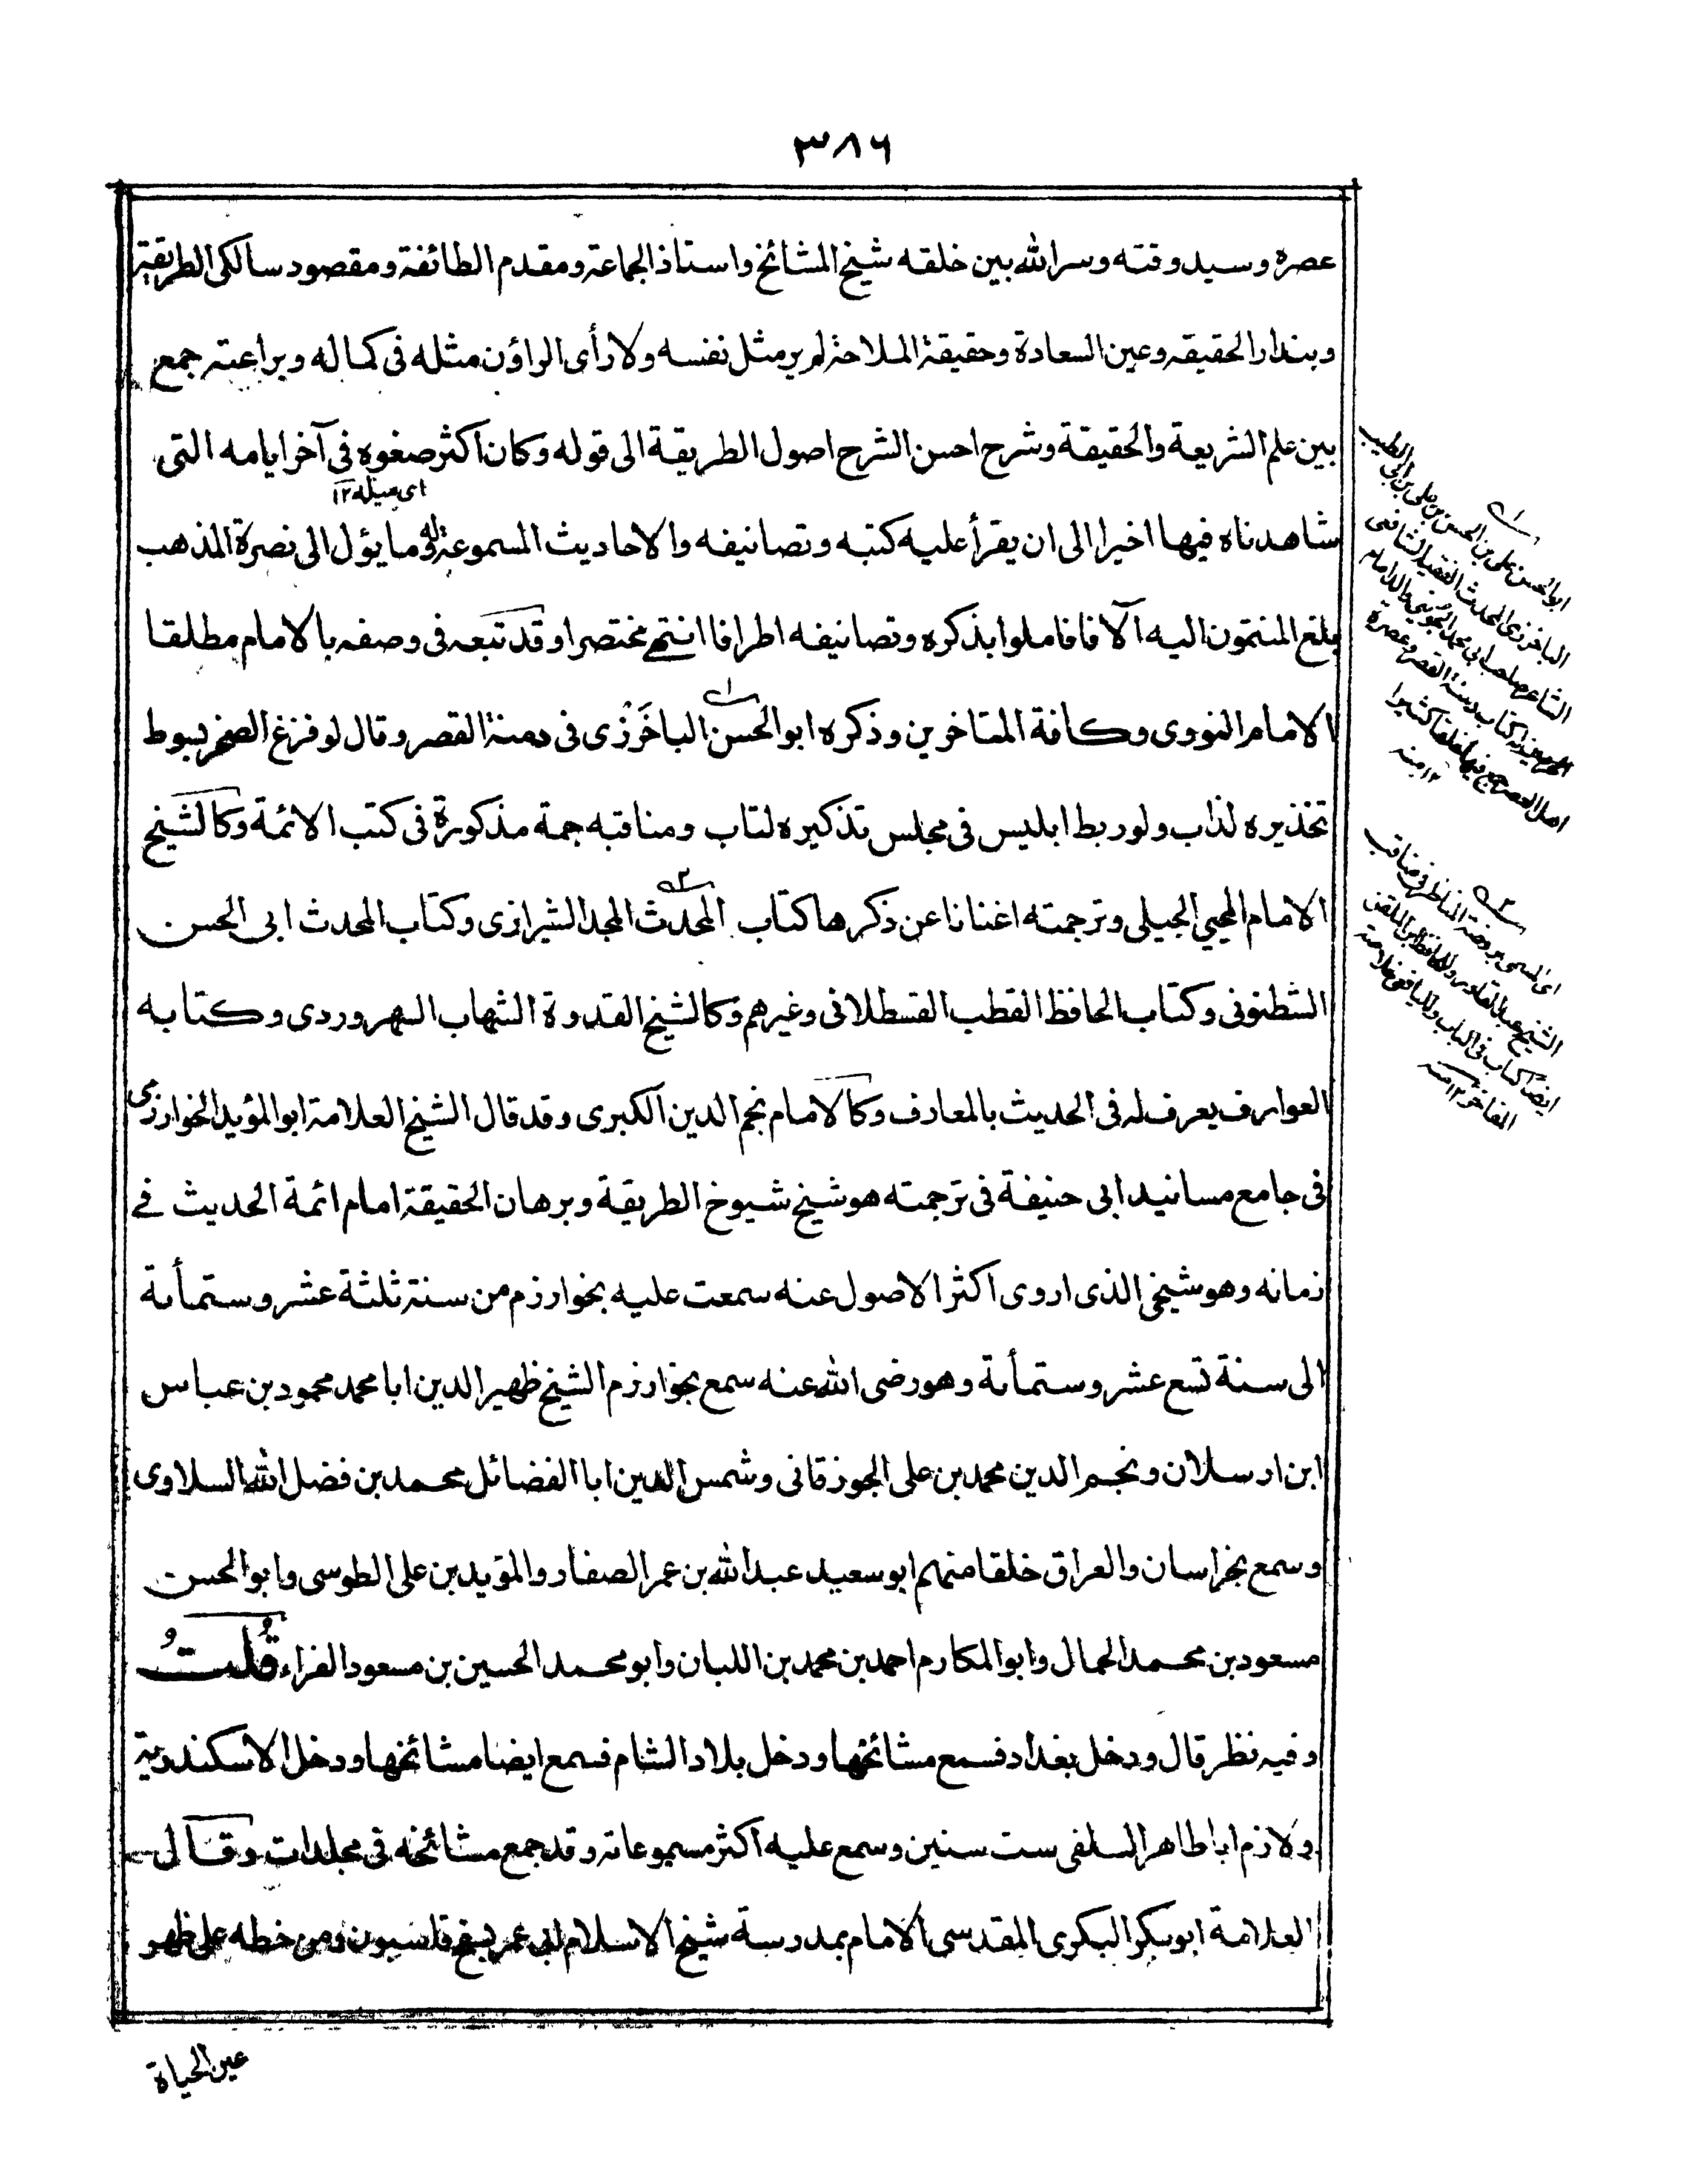 ٣٨٦
عصره وسيد وقته وسر الله بين خلقه شيخ المشائخ واستاذ الجماعة ومقدم الطائفة ومقصود سالكى الطريقة
وبندار الحقيقة وعين السعادة وحقيقة الملاحة لم ير مثل نفسه ولا رأى الراؤن مثله فى كماله وبراعته جمع
بين علم الشريعة والحقيقة وشرح احسن الشرح اصول الطريقة الى قوله وكان اكثر صغوه فى آخر ايامه التى
اى ميله ١٢
شاهدناه فيها اخيرا الى ان يقرأ عليه كتبه وتصانيفه والاحاديث المسموعة له وما يؤل الى نصرة المذهب
بلغ المنتمون اليه آلافا فاملوا بذكره وتصانيفه اطرافا انتهى مختصرا وقد تبعه فى وصفه بالامام مطلقا
الامام النووى وكافة المتاخرين وذكره ابو الحسن الباخَرْزى فى دمنة القصر وقال لو قرع الصخر بسوط
تحذيره لذاب ولو ربط ابليس فى مجلس تذكيره لتاب ومناقبه جمة مذكورة فى كتب الائمة وكالشيخ
الامام المحيى الجيلى وترجمته اغنانا عن ذكرها كتاب المحدث المجد الشيرازى وكتاب المحدث ابى الحسن
الشطنوفى وكتاب الحافظ القطب القسطلانى وغيرهم وكالشيخ القدوة الشهاب السهروردى وكتابه
العوارف يعرف له فى الحديث بالمعارف وكالامام نجم الدين الكبرى وقد قال الشيخ العلامة ابو المؤيد الخوارزمى
فى جامع مسانيد ابى حنيفة فى ترجمته هو شيخ شيوخ الطريقة وبرهان الحقيقة امام ائمة الحديث فے
زمانه وهو شيخى الذى اروى اكثر الاصول عنه سمعت عليه بخوارزم من سنة ثلثة عشر وستمأة
الى سنة تسع عشر وستمأة وهو رضى الله عنه سمع بخوارزم الشيخ ظهير الدين ابا محمد محمود بن عباس
ابن ارسلان ونجم الدين محمد بن على الجوزقانى وشمس الدين ابا الفضائل محمد بن فضل الله السلاوى
وسمع بخراسان والعراق خلقا منهم ابو سعيد عبد الله بن عمر الصفار والمؤيد بن على الطوسى وابو الحسن
مسعود بن محمد الجمال وابو المكارم احمد بن محمد بن اللبان وابو محمد الحسين بن مسعود الفراء قُلتُ
وفيه نظر قال ودخل بغداد فسمع مشائخها ودخل بلاد الشام فسمع ايضا مشائخها ودخل الاسكندرية
ولازم ابا طاهر السلفى ست سنين وسمع عليه اكثر مسموعاته وقد جمع مشائخه فى مجلدات وقال
العلامة ابو بكر البكرى المقدسى الامام بمدرسة شيخ الاسلام ابى عمر بسفح قاسيون ومن خطه على ظهر
عين الحياة
ـ١ـ
ابو الحسن على بن الحسن بن على بن ابى الطيب
الباخرزى المحدث الفقيه الشافعى
الشاعر صاحب ابى محمد الجوينى والد امام
الحرمين له كتاب دمية القصر وعصرة
اهل العصر جمع فيها خلقا كثيرا
١٢ منه
ـ٢ـ
اى المسمى بروضة الناظر فى مناقب
الشيخ عبد القادر وللحافظ ابن الملقن
ايضا كتاب فى الباب ولليافعى خلاصة
المفاخر ١٢ منه